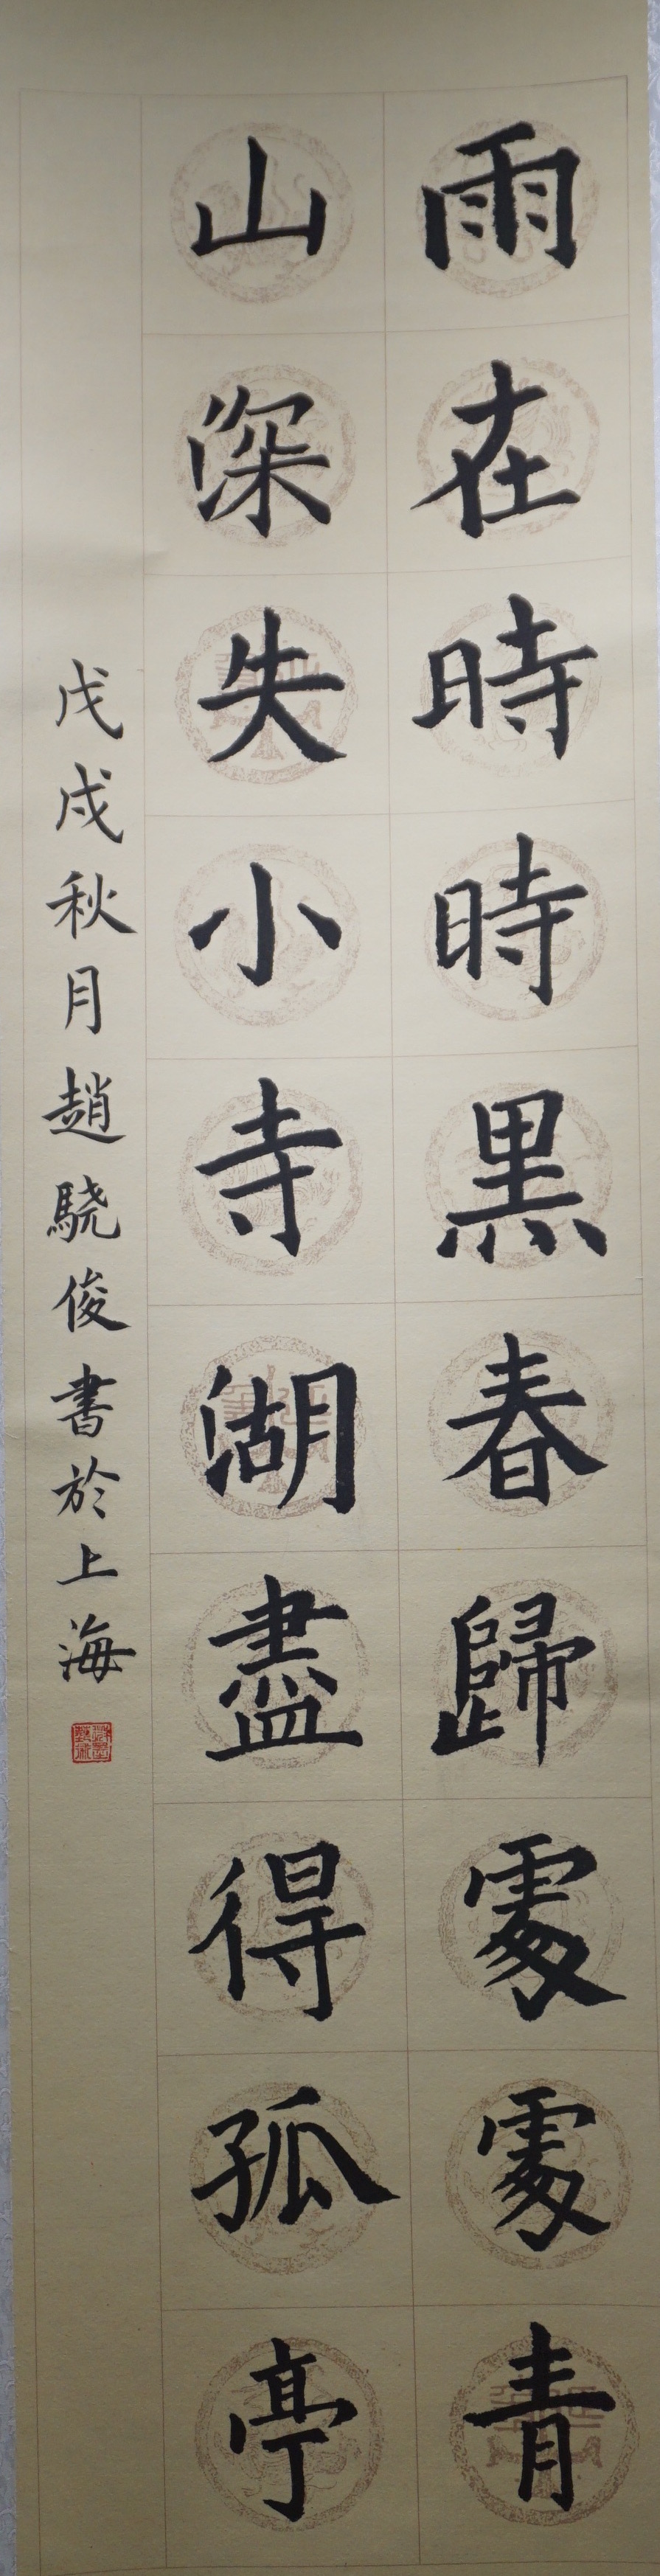 雨在時時黑春歸處處青
山深失小寺湖盡得孤亭
戊戌秋月趙驍俊書於上海